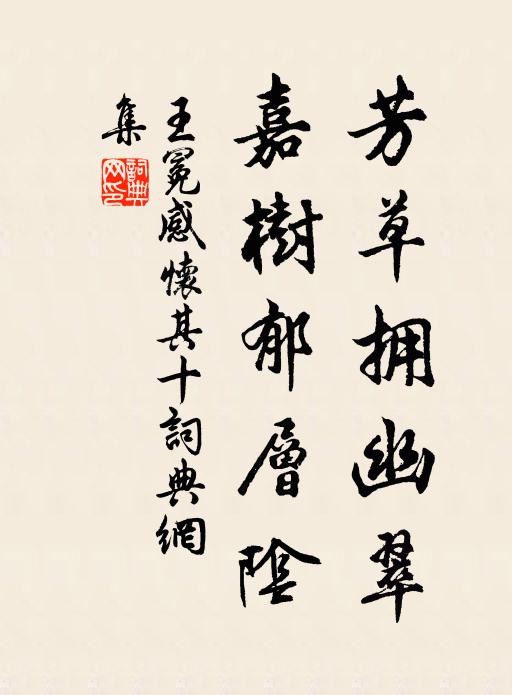 芳草拥幽翠
嘉樹郁層陰
王冕感懷其十詞典網
集
詞典網印